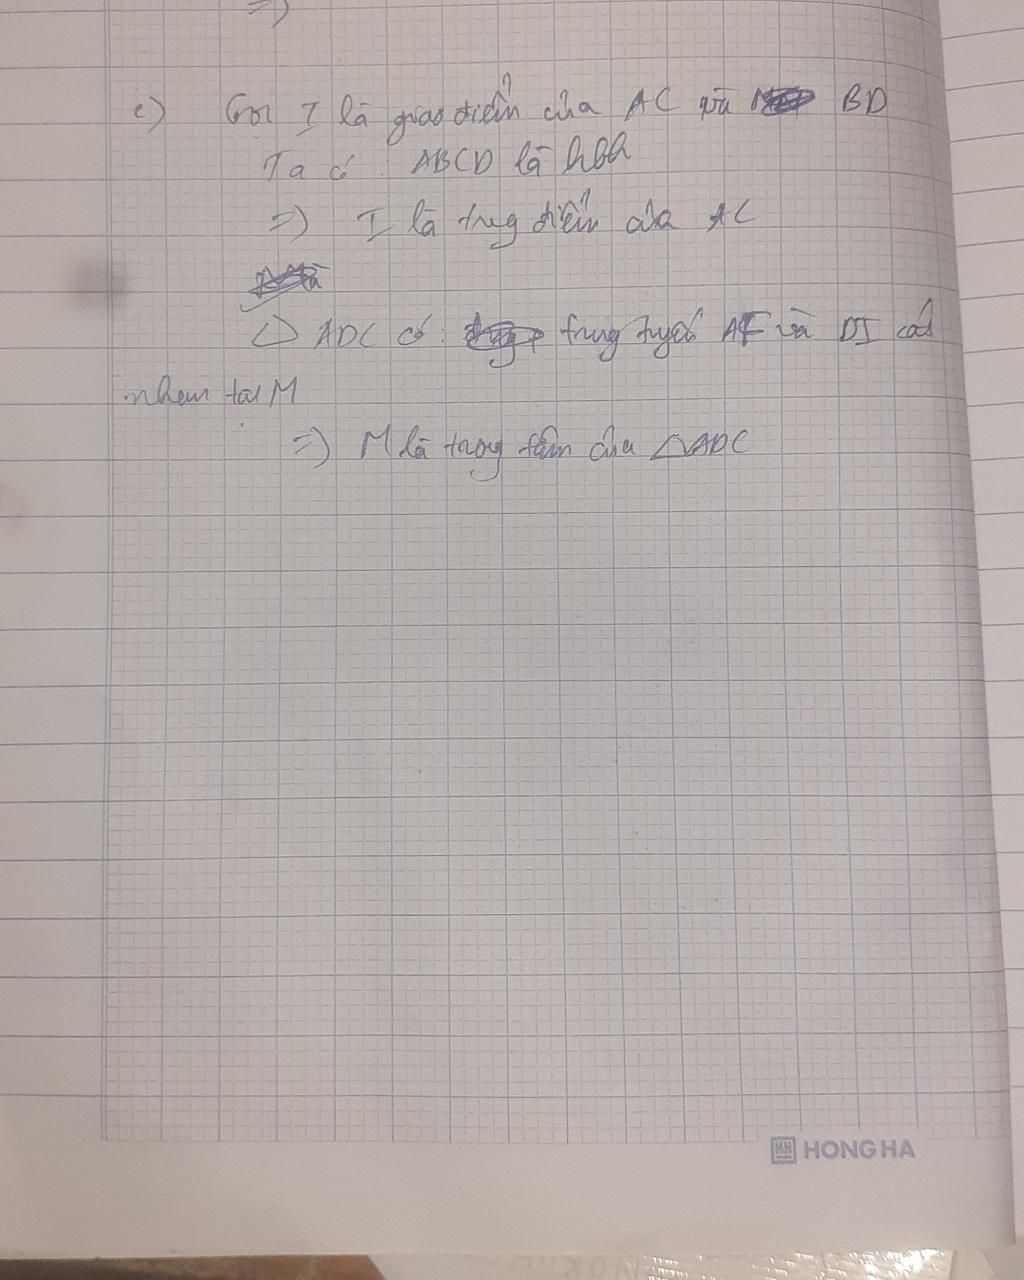 =)
c) Gọi I là giao điểm của AC và BD
Ta có: ABCD là hbh
=) I là trug điểm của AC
△ ADC có: trung tuyến AF và DI cắt
nhau tại M
=) M là trọng tâm của △ADC
HH HONG HA